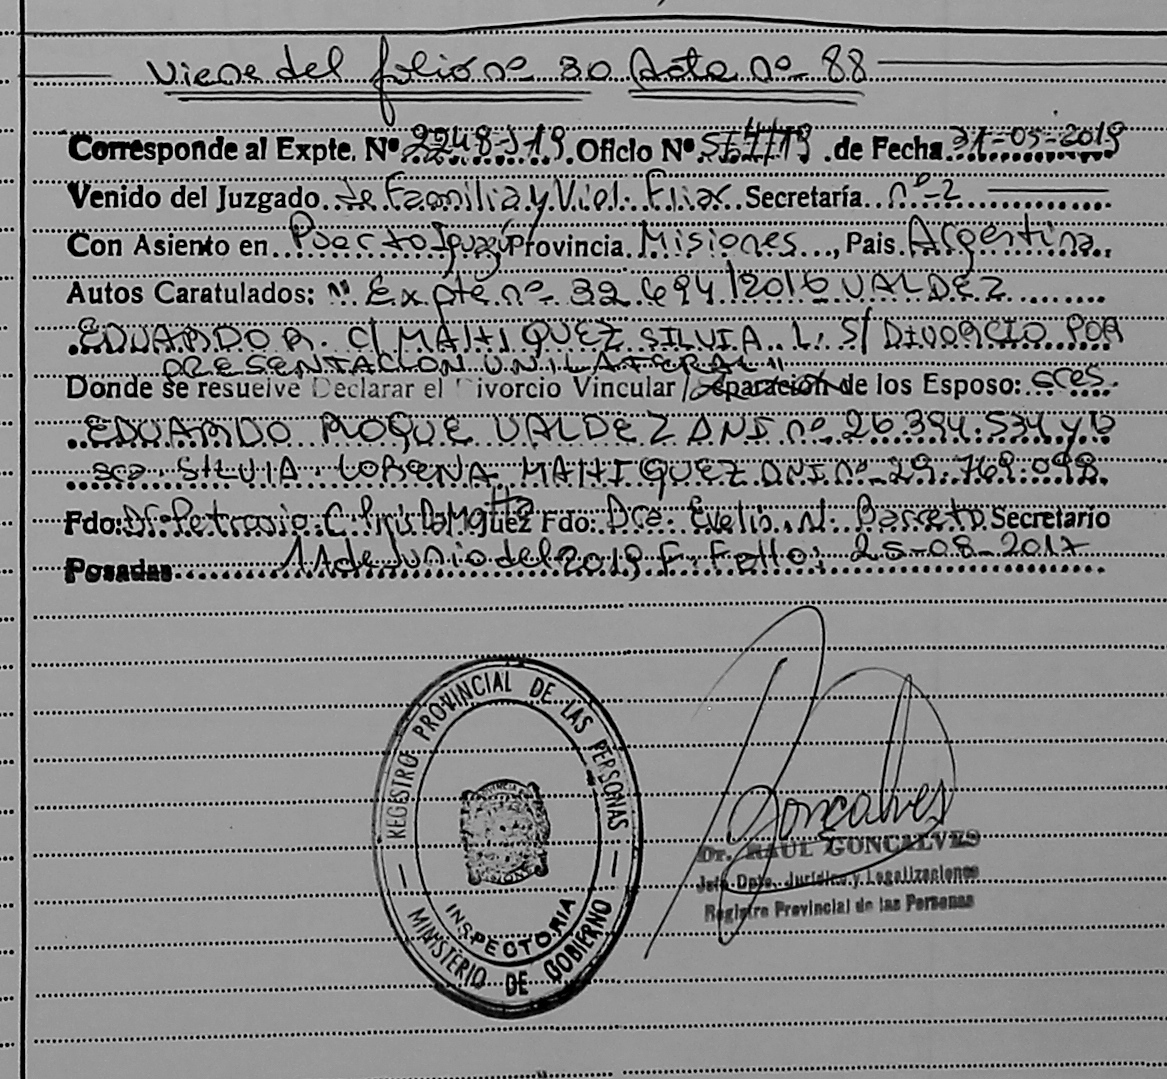 Viene del folio nº 30 Acta nº 88
Corresponde al Expte. Nº 2248-J-19. Oficio Nº .de Fecha 31-05-2019
Venido del Juzgado de Familia y Viol. Fliar. Secretaría nº-2
Con Asiento en Puerto Iguazú Provincia Misiones, Pais. Argentina.
Autos Caratulados: "Expte nº 32.694/2016 VALDEZ
EDUARDO R. C/ MAHIQUEZ SILVIA L. S/ DIVORCIO POR
PRESENTACION UNILATERAL"
Donde se resuelve Declarar el Divorcio Vincular / Separación de los Esposo: sres.
EDUARDO ROQUE VALDEZ DNI nº 26.394.534 y la
sra SILVIA LORENA MAHIQUEZ DNI nº 29.769.098.
Fdo: Dr. C. Fdo: Dra. Evelia N. Barreto Secretario
Posadas 11 de Junio del 2019 F. Fallo: 25-08-2017
REGISTRO PROVINCIAL DE LAS PERSONAS
INSPECTORIA
MINISTERIO DE GOBIERNO
Goncalves
Dr. RAUL GONCALVES
Jefe Dpto. Jurídico y Legalizaciones
Registro Provincial de las Personas